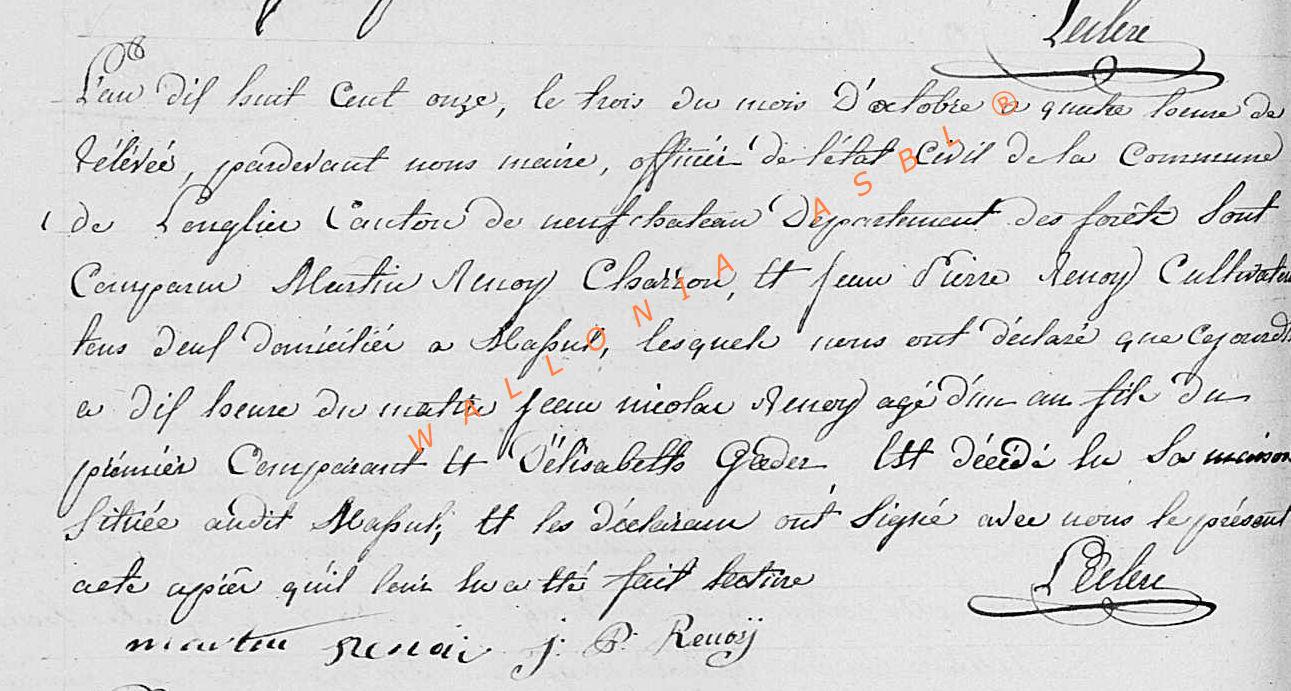 Leclere
L'an dix huit Cent onze, le trois du mois D'octobre a quatre heure de
rélévée, pardevant nous maire, officier de l'état Civil de la Commune
de Longlier Canton de neufchateau Département des forêts Sont
Comparu Martin Renoy Charron, et jean Pierre Renoy Cultivateur
tous deux domiciliér a Massul, lesquels nous ont déclaré que cejourd
a dix heure du matin jean nicolas Renoy agé d'un an fils du
prémiér Comparant et d'élisabeth Gœder Est décédé En Sa maison
Située audit Massul, et les déclarans ont Signé avec nous le présent
acte apiêr qu'il leur En a été fait lecture
LEclere
martin renoi j: P: Renoÿ
WALLONIA ASBL ®